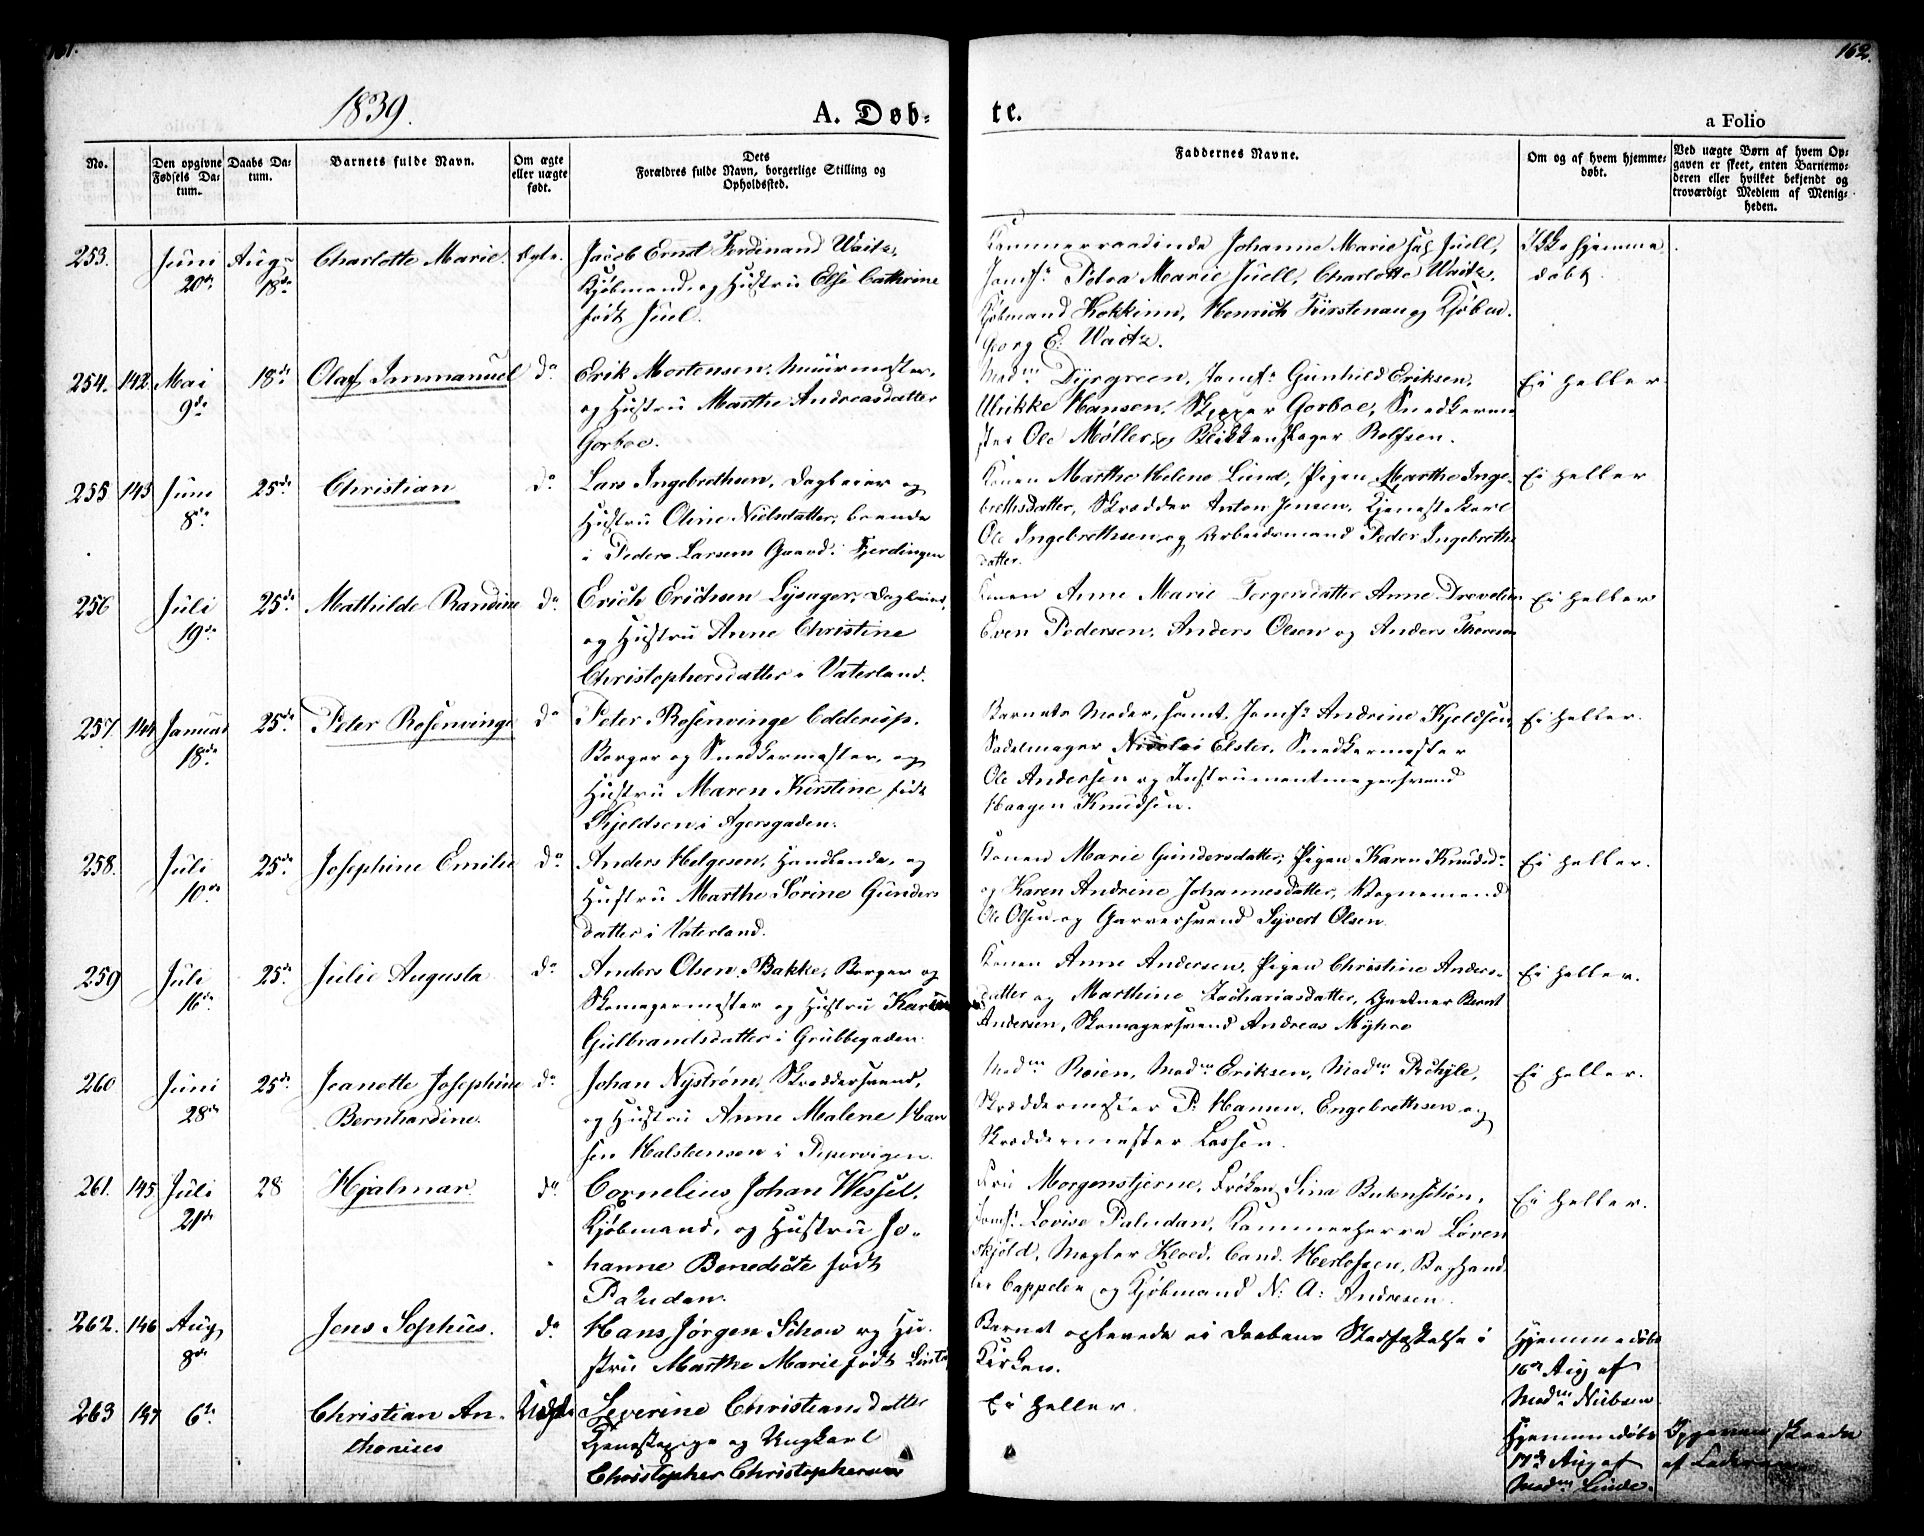 161.
162.
1839.
A. Døb-
te.
a Folio
No.
Den opgivne Fødsels Da-tum.
Daabs Da-tum.
Barnets fulde Navn.
Om ægte eller uægte født.
Dets Forældres fulde Navn, borgerlige Stilling og Opholdssted.
Faddernes Navne.
Om og af hvem hjemme-døbt.
Ved uægte Børn af hvem Op-gaven er skeet, enten Barnemo-deren eller hvilket bekjendt og troværdigt Medlem af Menig-heden.
253. Juni 20de Aug. 18de Charlotte Marie Ægte.
Jacob Ernst Ferdinand Waitz,
Kjøbmand, og Hustru Else Cathrine
født Juel.
Kammerraadinde Johanne Marie Juell,
Jomfr Petra Marie Juell, Charlotte Waitz,
Kjøbmand Kokkinn, Henrich Fürstenau og Kjøbm
Georg E. Waitz.
Ikke hjemme-
døbt
254. 142 Mai 9de 18de Olaf Immanuel do
Erik Mortensen, Muurmester,
og Hustru Marthe Andreasdatter
Gorboe.
Madm Dyrgreen, Jomfr Gunhild Eriksen,
Ulrikke Hansen, Skipper Gorboe, Snedkerme
ster Ole Møller, og Blikkenslager Rolfsen.
Ei heller.
255 143 Juni 8de 25de Christian do
Lars Ingebrethsen, Dagleier og
Hustru Oline Nielsdatter, boende
i Peder Larsens Gaard i Fjerdingen
Konen Marthe Helene Lund, Pigen Marthe Inge-
brethsdatter, Skrædder Anton Jensen, Tjenestekarl
Ole Ingebrethsen og Arbeidsmand Peder Ingebreths
datter.
Ei heller
256 Juli 19de 25de Mathilde Randine do
Erich Erichsen Lysager, Dagleier,
og Hustru Anne Christine
Christophersdatter i Vaterland.
Konen Anne Marie Torgersdatter Anne
Even Pedersen, Anders Olsen og Anders Thoresen
Ei heller
257. 144 Januar 18de 25de Peter Rosenvinge do
Peter Rosenvinge Colderup,
Borger og Snedkermester, og
Hustru Maren Kirstine født
Kjeldsen i Agersgaden.
Barnets Moder, samt Jomfr Andrine Kjeldsen,
Sadelmager Nicolai Elster, Snedkermester
Ole Andersen og Instrumentmagersvend
Haagen Knudsen.
Ei heller.
258. Juli 10de 25de Josephine Emilie do
Anders Helgesen, Handlende, og
Hustru Marthe Sørine Gunders
datter i Vaterland.
Konen Marie Gundersdatter, Pigen Karen Knudsdr
og Karen Andrine Johannesdatter, Vognmand
Ole Olsen og Garversvend Syvert Olsen
Ei heller.
259 Juli 16de 25de Julie Augusta do
Anders Olsen Bakke, Borger og
Skomagermester og Hustru Karen
Gulbrandsdatter i Grubbegaden.
Konen Anne Andersen, Pigen Christine Anders-
datter og Marthine Zachariasdatter, Gartner Bernt
Andersen, Skomagersvend Andreas Myhre
Ei heller.
260 Juni 28de 25de Jeanette Josephine
Bernhardine. do
Johan Nystrøm, Skræddersvend,
og Hustru Anne Malene Han
sen Halsteensen i Pipervigen.
Madm Roien, Madm Eriksen, Madm
Skræddermester P. Hansen, Engebrethsen og
Skræddermester Lassen.
Ei heller.
261. 145 Juli 21de 28 Hjalmar do
Cornelius Johan Wessel,
Kjøbmand, og Hustru Jo-
hanne Benedicte født
Paludan.
Fru Morgenstjerne, Frøken Sina Butenschøn,
Jomfr Lovise Paludan, Kammerherre Løven
skjold, Mægler Kloed, Cand. Herlofsen, Boghand
ler Cappelen og Kjøbmand N. A. Andresen.
Ei heller.
262. 146 Aug 8de Jens Sophus. do
Hans Jørgen Schou og Hu-
stru Marthe Marie født
Barnet oplevede ei Daabens Stadfæstelse i
Kirken.
Hjemmedøbt
16de Aug af
Madm Nielsen
263 147 6te Christian An-
thonius Uægte
Severine Christiansdatter
Tjenestepige og Ungkarl
Christopher Christophersen
Ei heller.
Hjemmedøbt
17de Aug af
Madm Linde.
Opgaven skeede
af